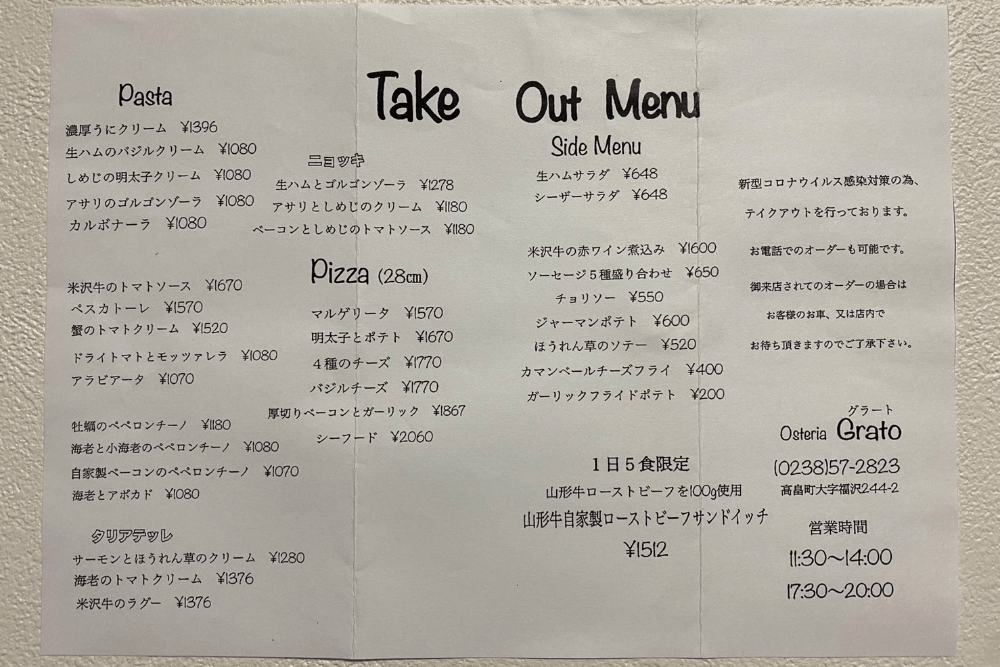 Take Out Menu
Pasta
濃厚うにクリーム ¥1396
生ハムのバジルクリーム ¥1080
しめじの明太子クリーム ¥1080
アサリのゴルゴンゾーラ ¥1080
カルボナーラ ¥1080
米沢牛のトマトソース ¥1670
ペスカトーレ ¥1570
蟹のトマトクリーム ¥1520
ドライトマトとモッツァレラ ¥1080
アラビアータ ¥1070
牡蠣のペペロンチーノ ¥1180
海老と小海老のペペロンチーノ ¥1080
自家製ベーコンのペペロンチーノ ¥1070
海老とアボカド ¥1080
タリアテッレ
サーモンとほうれん草のクリーム ¥1280
海老のトマトクリーム ¥1376
米沢牛のラグー ¥1376
ニョッキ
生ハムとゴルゴンゾーラ ¥1278
アサリとしめじのクリーム ¥1180
ベーコンとしめじのトマトソース ¥1180
Pizza (28㎝)
マルゲリータ ¥1570
明太子とポテト ¥1670
４種のチーズ ¥1770
バジルチーズ ¥1770
厚切りベーコンとガーリック ¥1867
シーフード ¥2060
Side Menu
生ハムサラダ ¥648
シーザーサラダ ¥648
米沢牛の赤ワイン煮込み ¥1600
ソーセージ５種盛り合わせ ¥650
チョリソー ¥550
ジャーマンポテト ¥600
ほうれん草のソテー ¥520
カマンベールチーズフライ ¥400
ガーリックフライドポテト ¥200
１日５食限定
山形牛ローストビーフを100g使用
山形牛自家製ローストビーフサンドイッチ
¥1512
新型コロナウイルス感染対策の為、
テイクアウトを行っております。
お電話でのオーダーも可能です。
御来店されてのオーダーの場合は
お客様のお車、又は店内で
お待ち頂きますのでご了承下さい。
グラート
Osteria Grato
(0238)57-2823
高畠町大字福沢244-2
営業時間
11:30〜14:00
17:30〜20:00